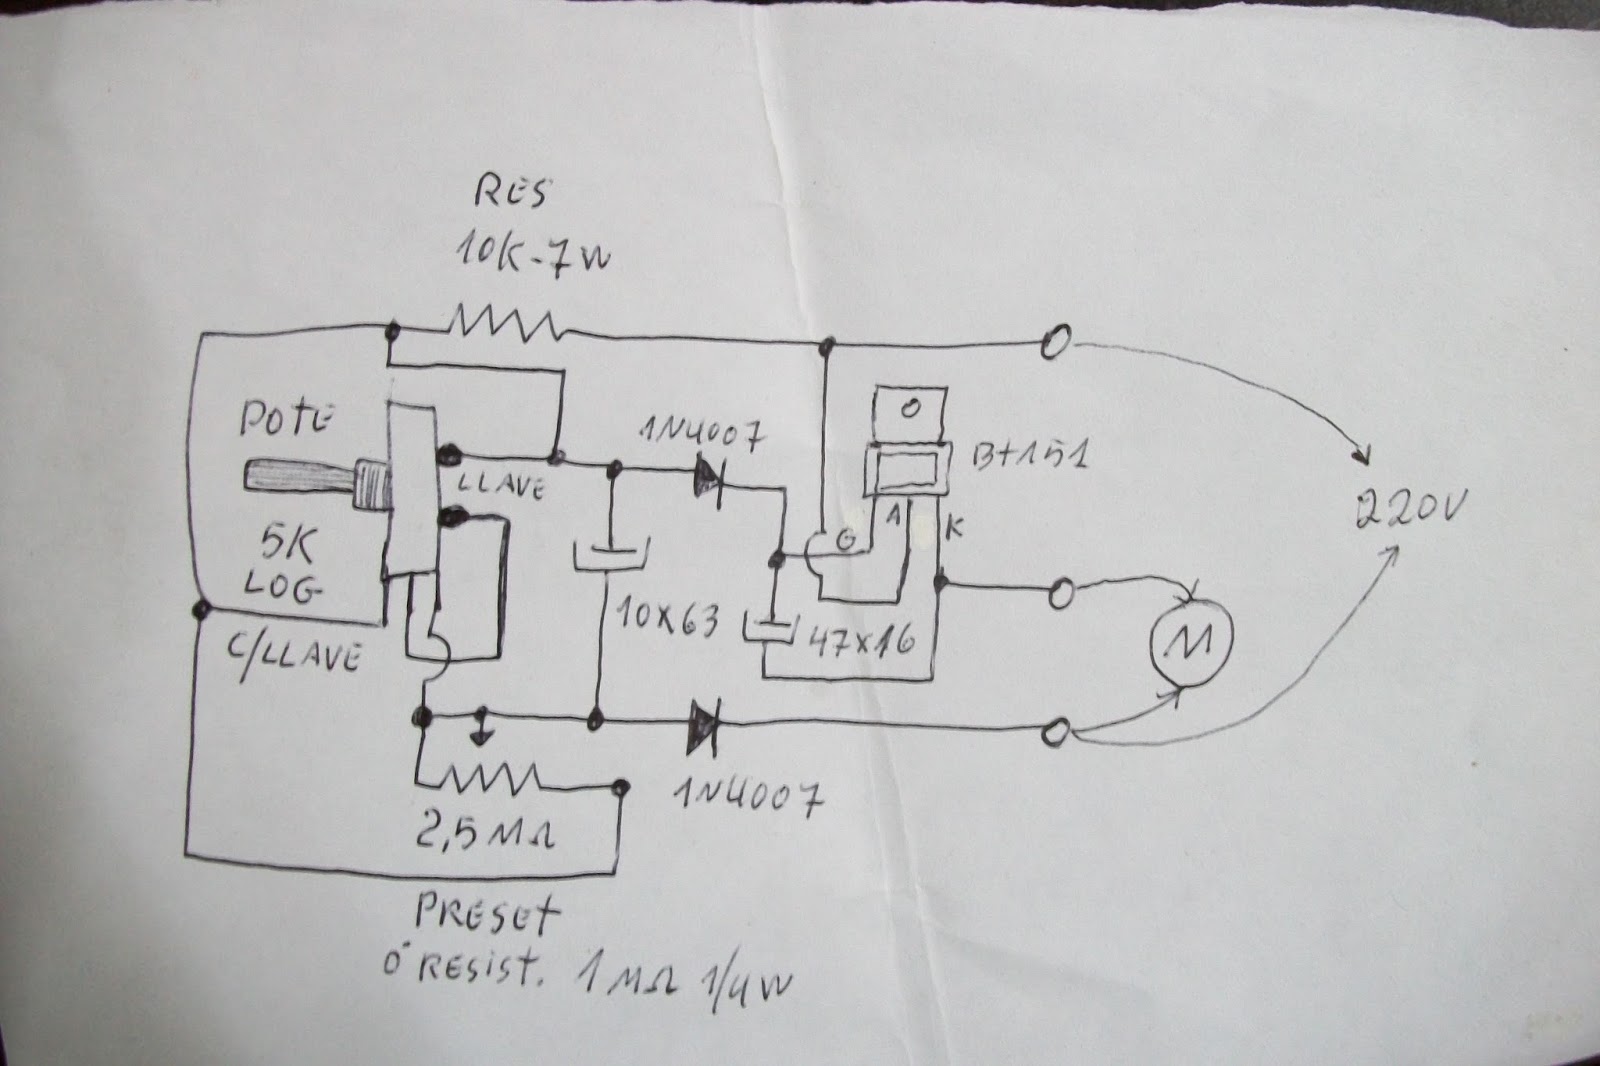 RES
10K-7W
POTE
LLAVE
5K
LOG
C/LLAVE
1N4007
Bt151
G
A
K
10X63
47x16
220V
M
1N4007
2,5MΩ
PRESEt
Ó RESISt. 1MΩ 1/4W